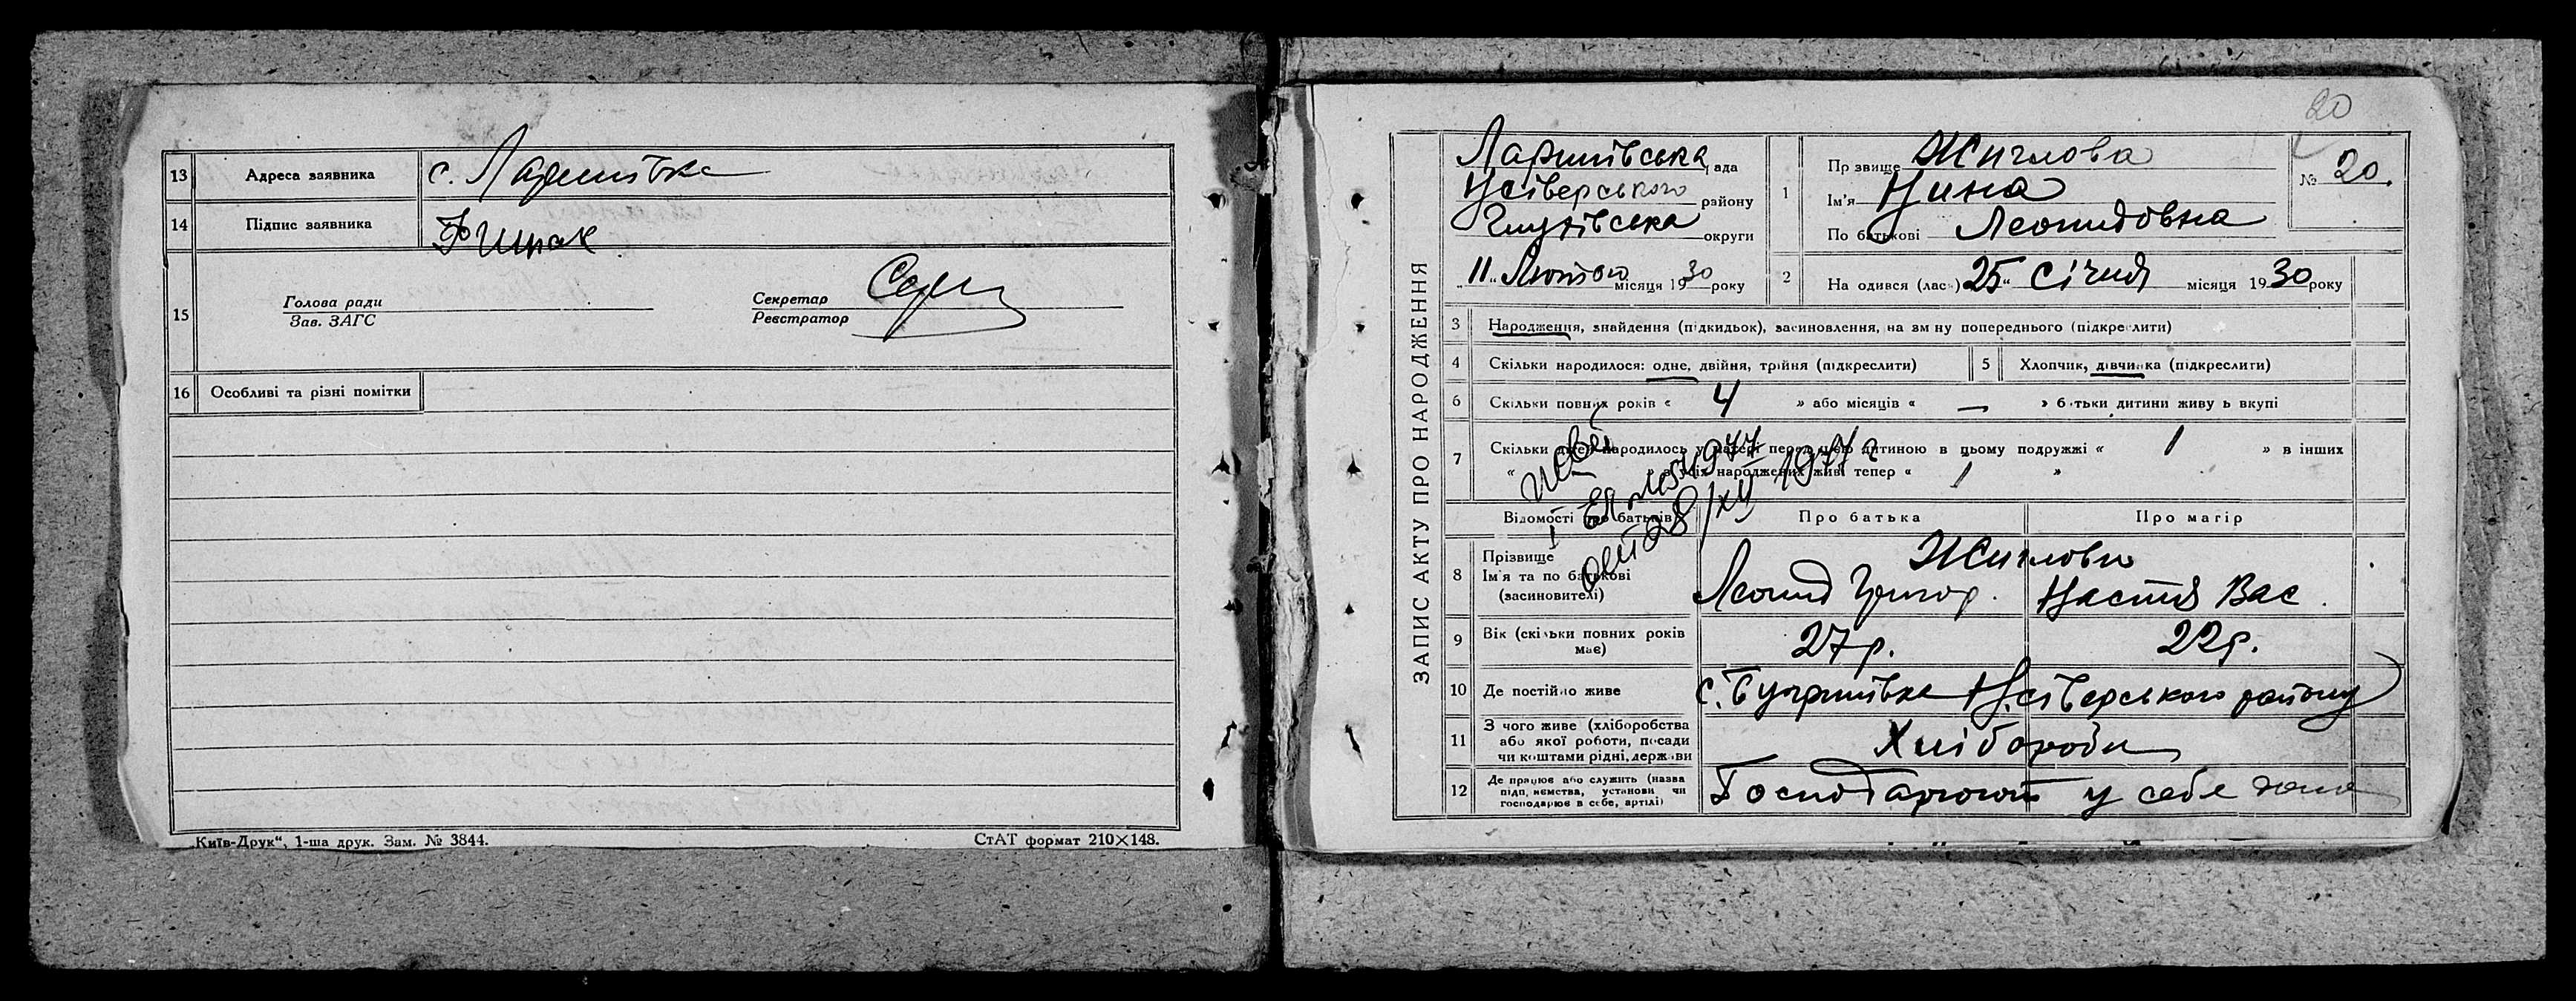 13 Адреса заявника с. Ларинівка
14 Підпис заявника
15 Голова ради
Зав. ЗАГС
Секретар
Реєстратор
16 Особливі та різні помітки
„Київ-Друк“, 1-ша друк. Зам. № 3844.
СтАТ формат 210×148.
20
ЗАПИС АКТУ ПРО НАРОДЖЕННЯ
Ларинівська рада
Н сіверського району
Глухівська округи
„11„ Лютого місяця 1930 року
1 Прізвище Жиглова
Ім'я Нина
По батькові Леонидовна
№ 20.
2 На одився (лась) „25“ Січня місяця 1930 року
3 Народження, знайдення (підкидьок), засиновлення, на зміну попереднього (підкреслити)
4 Скільки народилося: одне, двійня, трійня (підкреслити)
5 Хлопчик, дівчинка (підкреслити)
6 Скільки повних років « 4 » або місяців « — » батьки дитини живуть вкупі
7 Скільки дітей народилось у матері перед цією дитиною в цьому подружжі « 1 » в інших
« » з усіх народжених живі тепер « 1 »
28/XII 1977 г
Відомості про батьків
Про батька
Про матір
8 Прізвище
Ім'я та по батькові
(засиновителі)
Жиглови
Леонид Григор.
Настя Вас.
9 Вік (скільки повних років
має)
27 р.
22 р.
10 Де постійно живе с. Н. сіверського району
11 З чого живе (хліборобства
або якої роботи, посади
чи коштами рідні, держави
Хлібороби
12 Де працює або служить (назва
підприємства, установи чи
господарює в себе, артілі)
Господарюют у себе дома